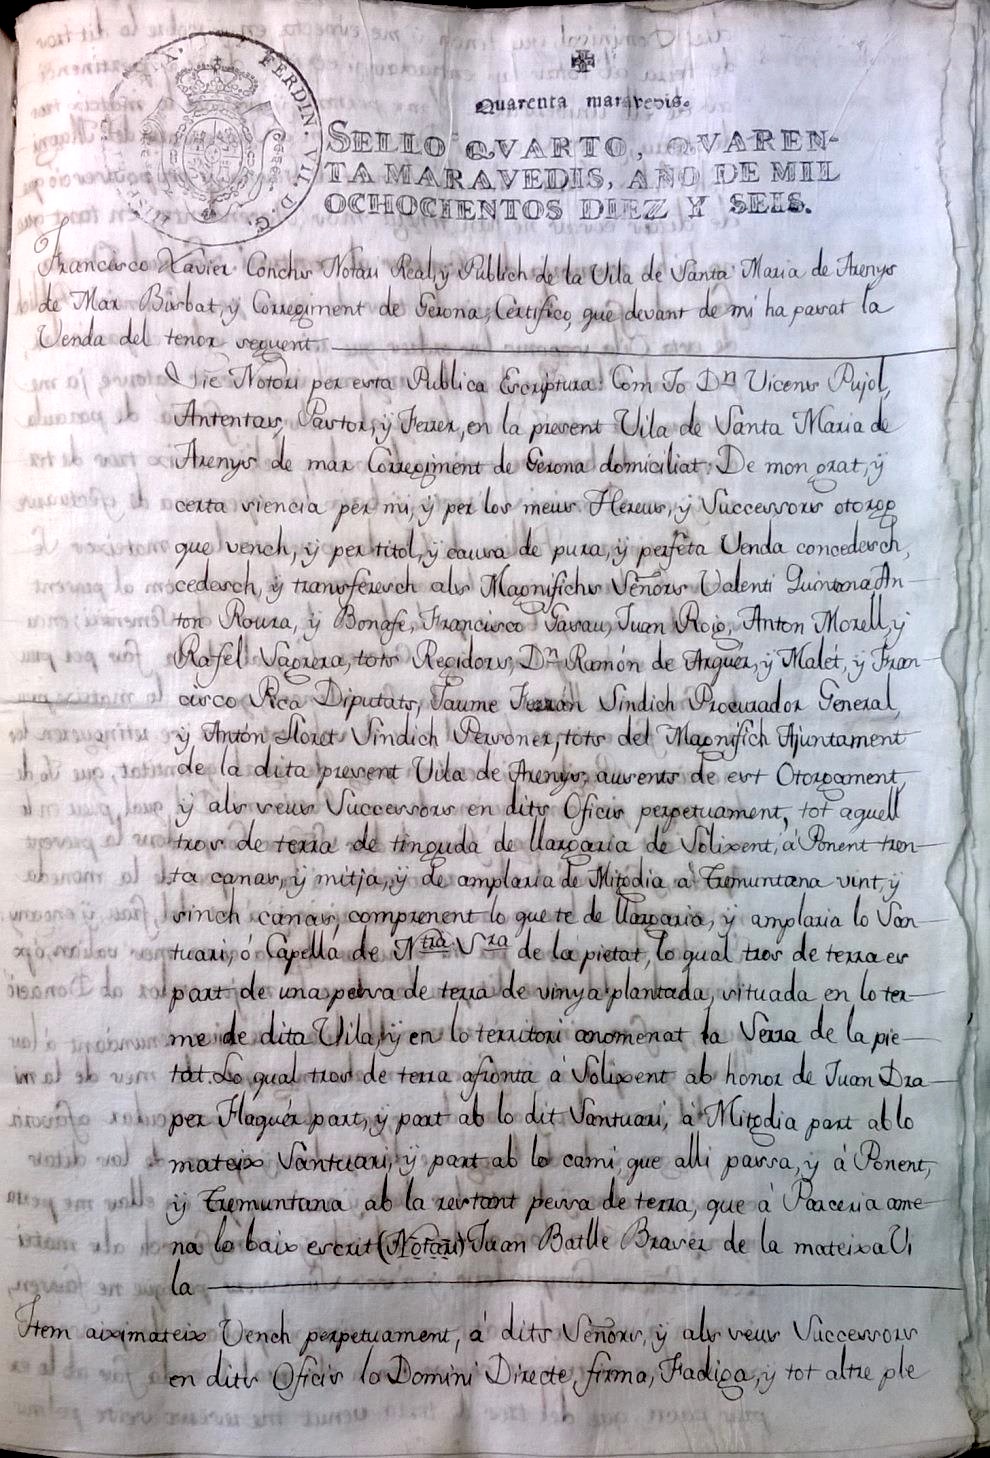 FERDIN. VII. D. G.
Quarenta maravedis.
SELLO QVARTO, QVAREN-
TA MARAVEDIS, AÑO DE MIL
OCHOCIENTOS DIEZ Y SEIS.
Francisco Xavier Conchs Notari Real, ÿ Publich de la Vila de Santa Maria de Arenys
de Mar Bisbat, ÿ Corregiment de Gerona; Certifico, que devant de mi ha passat la
Venda del tenor seguent
Sie Notori per esta Publica Escriptura: Com Jo Dn Vicens Pujol,
Antentas, Pastor, ÿ Ferrer, en la present Vila de Santa Maria de
Arenys de mar Corregiment de Gerona domiciliat: De mon grat, ÿ
certa siencia per mi, ÿ per los meus Hereus, ÿ Successors otorgo
que vench, ÿ per titol, ÿ causa de pura, ÿ perfeta Venda concedesch,
cedesch, ÿ transferesch als Magnifichs Señors Valenti Quintana An-
ton Roura, ÿ Bonafe, Francisco Gasau, Juan Roig, Anton Morell, ÿ
Rafel Sagrera, tots Regidors, Dn Ramón de Arguer, ÿ Malet, ÿ Fran-
cisco Pica Diputats, Jaume Ferrán Sindich Procurador General,
ÿ Antón Lloret Sindich Personer, tots del Magnifich Ajuntament
de la dita present Vila de Arenys; ausents de est Otorgament,
ÿ als seus Successors en dits Oficis perpetuament, tot aquell
tros de terra de tinguda de llargaria de Solixent, á Ponent tren-
ta canas, ÿ mitja, ÿ de amplaria de Mitgdia á Tremuntana vint, ÿ
sinch canas, comprenent lo que te de llargaria, ÿ amplaria lo San-
tuari, ó Capella de Ntra Sra de la pietat, lo qual tros de terra es
part de una pessa de terra de vinya plantada, situada en lo ter-
me de dita Vila, ÿ en lo territori anomenat la Serra de la pie-
tat. Lo qual tros de terra afronta á Solixent ab honor de Juan Dra-
per Flaquér part, ÿ part ab lo dit Santuari, á Mitgdia part ab lo
mateix Santuari, ÿ part ab lo camí, que alli passa, ÿ á Ponent,
ÿ Tremuntana ab la restant pessa de terra, que á Parceria ame-
na lo baix escrit (Notari) Juan Batlle Braser de la mateixa Vi
la
Item aiximateix Vench perpetuament, á dits Señors, ÿ als seus Successors
en dits Oficis lo Domini Directe, firma, Fadiga, ÿ tot altre ple